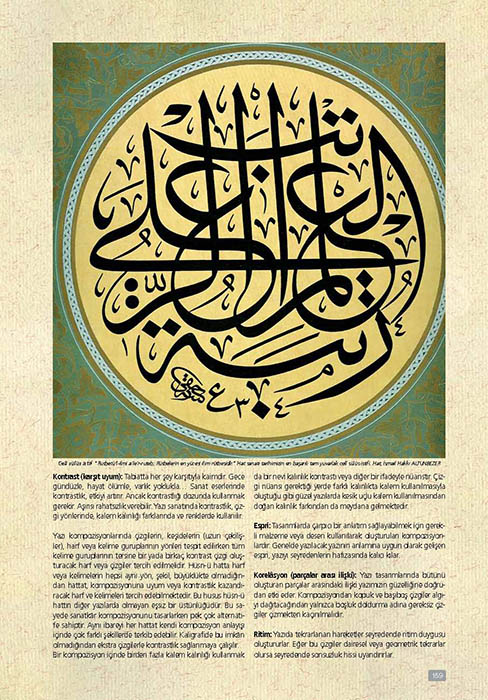 رتبة العلم اعلى الرتب
Celî sülüs istif " Rütbetü'l-ilmi a'le'r-rüteb, Rütbelerin en yücesi ilim rütbesidir" Hat sanatı tarihimizin en başarılı tam yuvarlak celî sülüs istifi. Hat; İsmail Hakkı ALTUNBEZER
Kontrast (karşıt uyum): Tabiatta her şey karşıtıyla kaimdir. Gece
gündüzle, hayat ölümle, varlık yoklukla… Sanat eserlerinde
kontrastlık, etkiyi artırır. Ancak kontrastlığı dozunda kullanmak
gerekir. Aşırısı rahatsızlık verebilir. Yazı sanatında kontrastlık, çiz-
gi yönlerinde, kalem kalınlığı farklarında ve renklerde kullanılır.
Yazı kompozisyonlarında çizgilerin, keşidelerin (uzun çekiliş-
ler), harf veya kelime guruplarının yönleri tespit edilirken tüm
kelime guruplarının tersine bir yada birkaç kontrast çizgi oluş-
turacak harf veya çizgiler tercih edilmelidir. Hüsn-ü hatta harf
veya kelimelerin hepsi aynı yön, şekil, büyüklükte olmadığın-
dan hattat, kompozisyonuna uyum veya kontrastlık kazandı-
racak harf ve kelimeleri tercih edebilmektedir. Bu husus hüsn-ü
hattın diğer yazılarda olmayan eşsiz bir üstünlüğüdür. Bu sa-
yede sanatkâr kompozisyonunu tasarlarken pek çok alternati-
fe sahiptir. Aynı ibareyi her hattat kendi kompozisyon anlayışı
içinde çok farklı şekillerde terkib edebilir. Kaligrafide bu imkân
olmadığından ekstra çizgilerle kontrastlık sağlanmaya çalışılır.
Bir kompozisyon içinde birden fazla kalem kalınlığı kullanmak
da bir nevi kalınlık kontrastı veya diğer bir ifadeyle nüanstır. Çiz-
gi nüansı gerektiği yerde farklı kalınlıkta kalem kullanılmasıyla
oluştuğu gibi güzel yazılarda kesik uçlu kalem kullanılmasından
doğan kalınlık farkından da meydana gelmektedir.
Espri: Tasarımlarda çarpıcı bir anlatım sağlayabilmek için gerek-
li malzeme veya desen kullanılarak oluşturulan kompozisyon-
lardır. Genelde yazılacak yazının anlamına uygun olarak gelişen
espri, yazıyı seyredenlerin hafızasında kalıcı kılar.
Korelâsyon (parçalar arası ilişki): Yazı tasarımlarında bütünü
oluşturan parçalar arasındaki ilişki yazımızın güzelliğine doğru-
dan etki eder. Kompozisyondan kopuk ve başıboş çizgiler algı-
yı dağıtacağından yalnızca boşluk doldurma adına gereksiz çiz-
giler çizmekten kaçınılmalıdır.
Ritim: Yazıda tekrarlanan hareketler seyredende ritim duygusu
oluştururlar. Eğer bu çizgiler dairesel veya geometrik tekrarlar
olursa seyredende sonsuzluk hissi uyandırırlar.
159